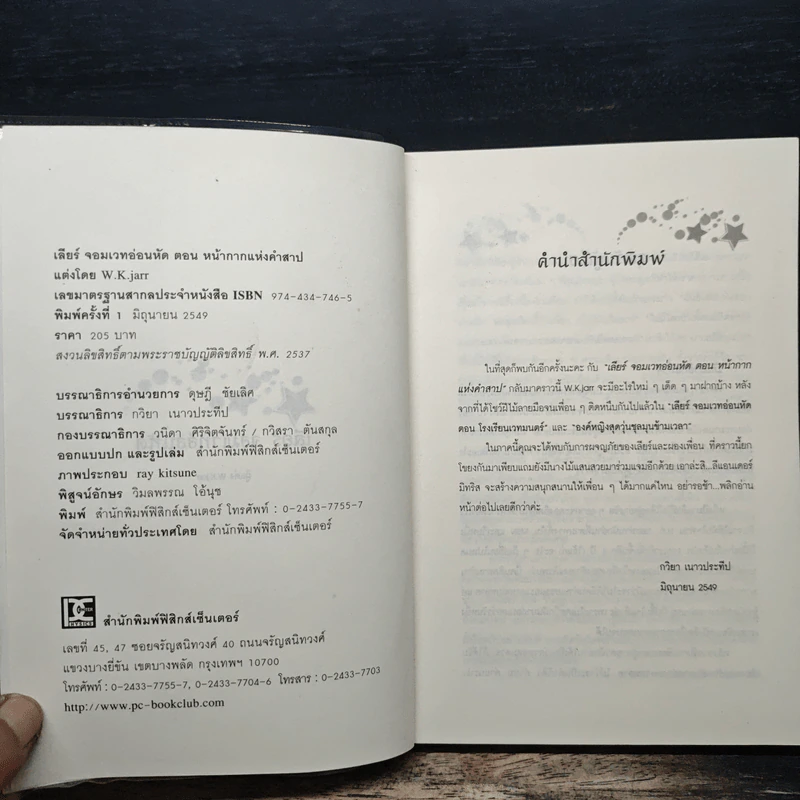 เลียร์ จอมเวทอ่อนหัด ตอน หน้ากากแห่งคำสาป
แต่งโดย W.K.jarr
เลขมาตรฐานสากลประจำหนังสือ ISBN 974-434-746-5
พิมพ์ครั้งที่ 1 มิถุนายน 2549
ราคา 205 บาท
สงวนลิขสิทธิ์ตามพระราชบัญญัติลิขสิทธิ์ พ.ศ. 2537
บรรณาธิการอำนวยการ ดุษฎี ชัยเลิศ
บรรณาธิการ กวิยา เนาวประทีป
กองบรรณาธิการ วนิดา ศิริจิตจันทร์ / กวิสรา ตันสกุล
ออกแบบปก และรูปเล่ม สำนักพิมพ์ฟิสิกส์เซ็นเตอร์
ภาพประกอบ ray kitsune
พิสูจน์อักษร วิมลพรรณ โอ้นุช
พิมพ์ สำนักพิมพ์ฟิสิกส์เซ็นเตอร์ โทรศัพท์ : 0-2433-7755-7
จัดจำหน่ายทั่วประเทศโดย สำนักพิมพ์ฟิสิกส์เซ็นเตอร์
สำนักพิมพ์ฟิสิกส์เซ็นเตอร์
เลขที่ 45, 47 ซอยจรัญสนิทวงศ์ 40 ถนนจรัญสนิทวงศ์
แขวงบางยี่ขัน เขตบางพลัด กรุงเทพฯ 10700
โทรศัพท์ : 0-2433-7755-7, 0-2433-7704-6 โทรสาร : 0-2433-7703
http://www.pc-bookclub.com
คำนำสำนักพิมพ์
ในที่สุดก็พบกันอีกครั้งนะคะ กับ "เลียร์ จอมเวทอ่อนหัด ตอน หน้ากาก
แห่งคำสาป" กลับมาคราวนี้ W.K.jarr จะมีอะไรใหม่ ๆ เด็ด ๆ มาฝากบ้าง หลัง
จากที่ได้โชว์ฝีไม้ลายมือจนเพื่อน ๆ ติดหนึบกันไปแล้วใน "เลียร์ จอมเวทอ่อนหัด
ตอน โรงเรียนเวทมนตร์" และ "องค์หญิงสุดวุ่นชุลมุนข้ามเวลา"
ในภาคนี้คุณจะได้พบกับการผจญภัยของเลียร์และผองเพื่อน ที่คราวนี้ยก
โขยงกันมาเพียบแถมยังมีนางไม้แสนสวยมาร่วมแจมอีกด้วย เอาล่ะสิ...ลีแอนเดอร์
มิทริส จะสร้างความสนุกสนานให้เพื่อน ๆ ได้มากแค่ไหน อย่ารอช้า...พลิกอ่าน
หน้าต่อไปเลยดีกว่าค่ะ
กวิยา เนาวประทีป
มิถุนายน 2549